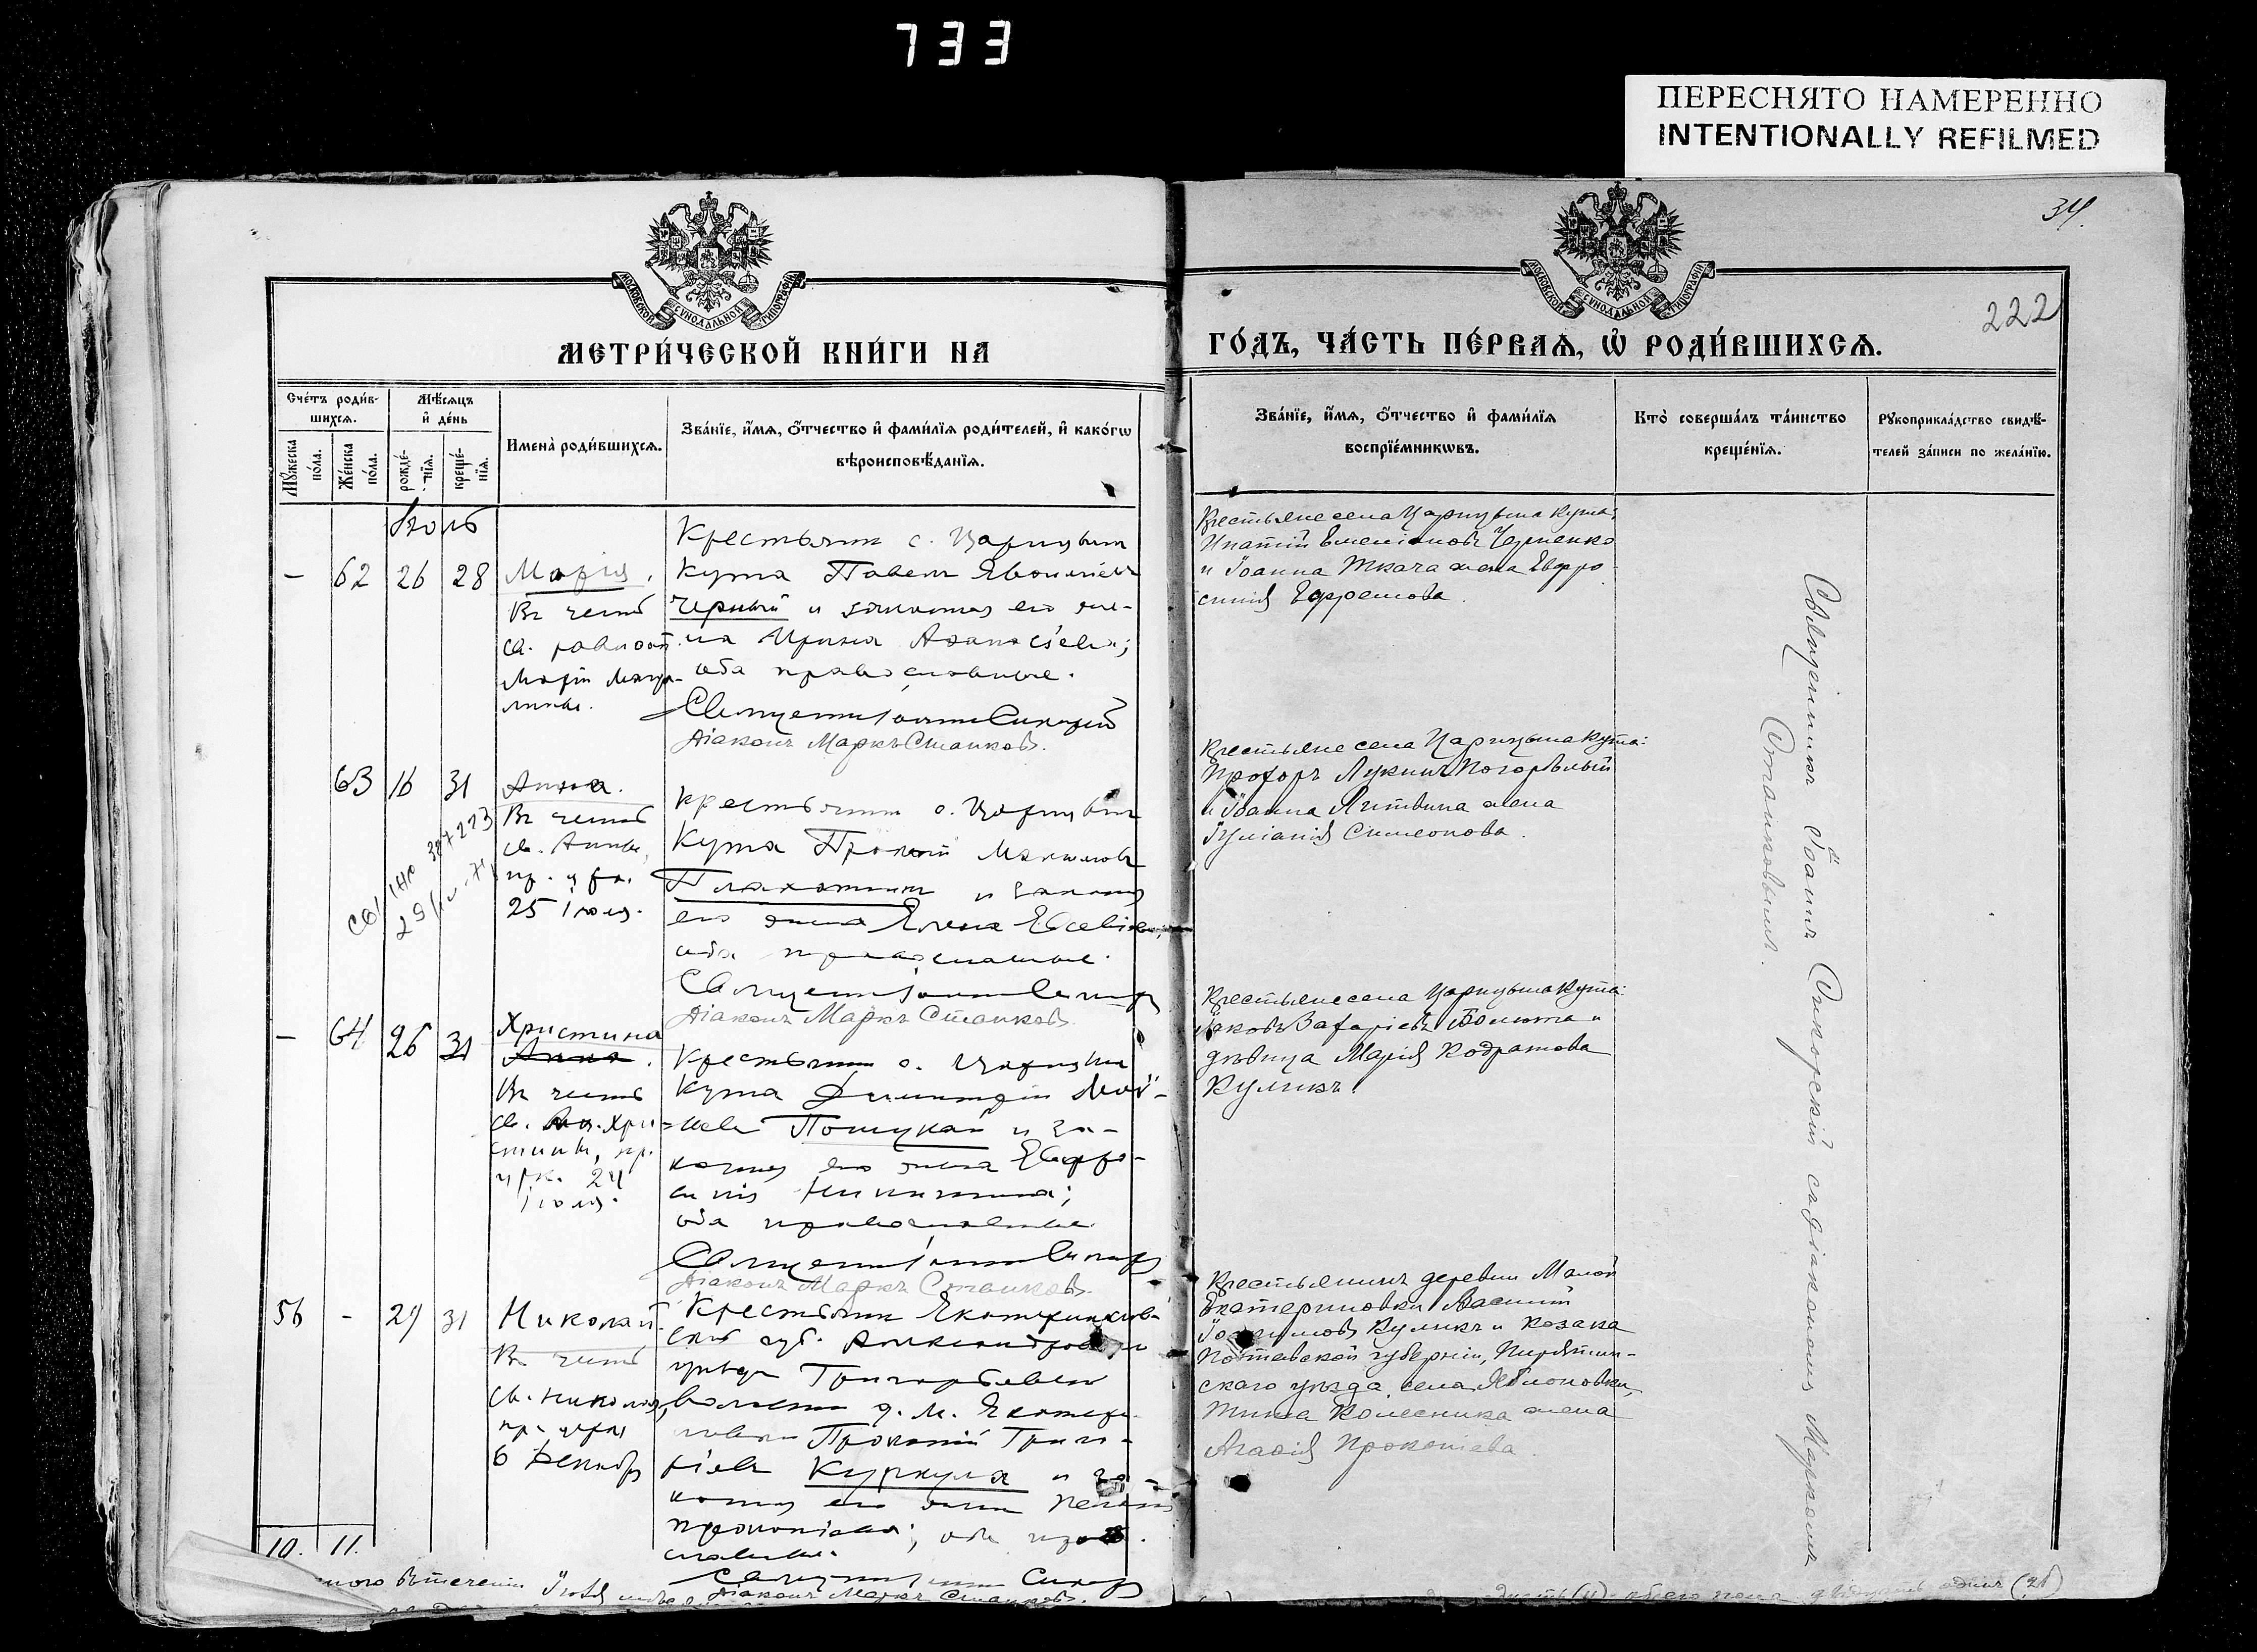 733
ПЕРЕСНЯТО НАМЕРЕННО
INTENTIONALLY REFILMED
34.
222
МОСКОВСКОЙ СѴНОДАЛЬНОЙ ТИПОГРАФІИ
МОСКОВСКОЙ СѴНОДАЛЬНОЙ ТИПОГРАФІИ
МЕТРИ́ЧЕСКОЙ КНИ́ГИ НА
ГО́ДЪ, ЧА́СТЬ ПЕ́РВАѦ, Ѡ҆ РОДИ́ВШИХСѦ.
Сче́тъ роди́в-
шихсѧ.
Мꙋ́жеска по́ла.
Же́нска по́ла.
Мѣ́сѧцъ
и҆ де́нь
рожде́-нїѧ.
креще́-нїѧ.
Имена̀ роди́вшихсѧ.
Зва́нїе, и҆́мѧ, ѻ҆́тчество и҆ фами́лїѧ роди́телей, и҆ како́гѡ
вѣроисповѣ́данїѧ.
Зва́нїе, и҆́мѧ, ѻ҆́тчество и҆ фами́лїѧ
воспрїе́мникѡвъ.
Кто̀ соверша́лъ та́инство
креще́нїѧ.
Рꙋкоприкла́дство свидѣ́-
телей за́писи по жела́нїю.
Іюль
— 62 26 28 Марія.
Въ честь
св. равноап.
Маріи Магда-
лины.
Крестьянин с. Царицын
Кута Павел
Черный и законная его же-
на Ирина Аѳанасіева;
оба православные.
Діаконъ Маркъ Станковъ.
Крестьяне села Царицына Кута:
Ипатій Емеліановъ Черненко
и Іоанна Ткача жена Евфро-
синія Ефремова.
63 16 31 Анна.
Въ честь
св. Анны,
пр. црк.
25 іюля.
Крестьянин с. Царицын
Кута Прокопій Максимовъ
Плахотник и законная
его жена Елена Евсевіева;
оба православные.
Діаконъ Маркъ Станковъ.
Крестьяне села Царицына Кута:
Прохоръ Лукинъ Погорѣлый
и Іоанна Литвина жена
Іуліанія Симеонова.
— 64 26 31 Христина
Анна.
Въ честь
св. Хри-
стины, пр.
црк. 24
іюля.
Крестьянин с. Царицын
Кута Димитрій Мой-
сеев Поцукай и за-
конная его жена Евфро-
синія Никитина;
оба православные.
Діаконъ Маркъ Станковъ.
Крестьяне села Царицына Кута:
Іаковъ Захаріевъ Болюта и
дѣвица Марія Кодратова
Куликъ.
56 - 29 31 Николай.
Въ честь
св. Николая,
пр. црк.
6 декабр
Крестьянин Екатеринослав-
ской губ. Александровск
уѣзда Григорьевск
волости д. М. Екатери-
новки Прокопій Григо-
ріев Куркула и за-
конная его жена
Прокопіева; оба право-
славные.
Діаконъ Маркъ Станковъ.
Крестьянинъ деревни Малой
Екатериновки Василій
Іоакимовъ Куликъ и козака
Полтавской губерніи, Пирятин-
скаго уѣзда, села Яблоновки,
Колесника жена
Агафія Прокопіева.
Священникъ Іоаннъ Сикорскій съ діакономъ Маркомъ
Станковымъ.
10. 11.